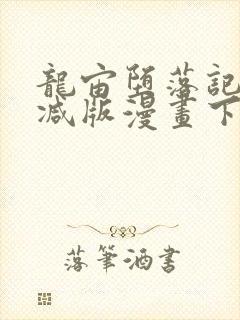 龍宙墮落記
減版漫畫下
落筆酒書